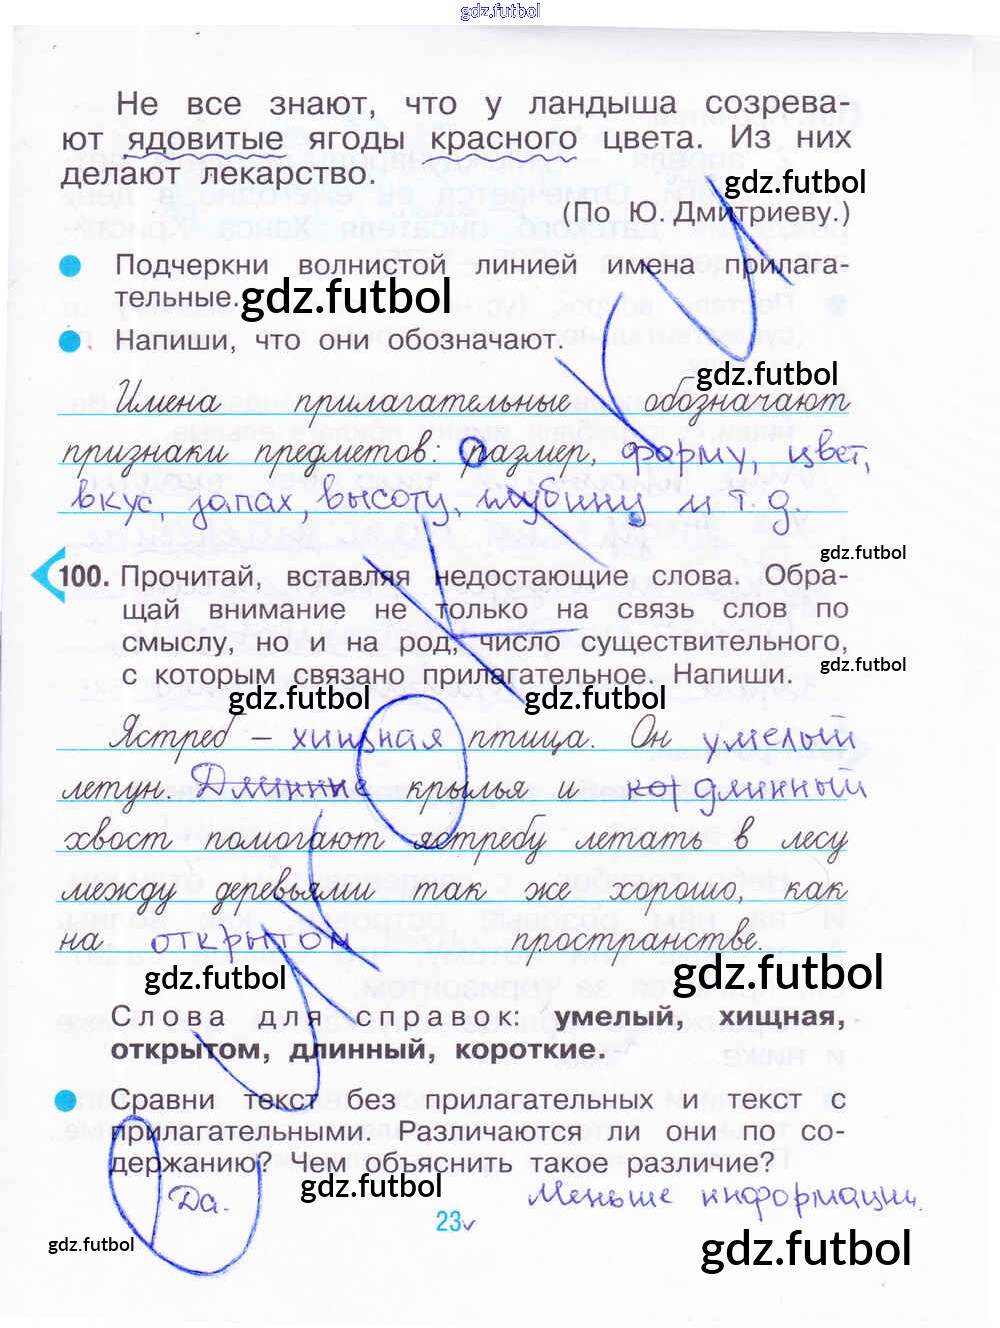 gdz.futbol
Не все знают, что у ландыша созрева-
ют ядовитые ягоды красного цвета. Из них
делают лекарство.
gdz.futbol
(По Ю. Дмитриеву.)
Подчеркни волнистой линией имена прилага-
тельные. gdz.futbol
Напиши, что они обозначают.
gdz.futbol
Имена прилагательные обозначают
признаки предметов: размер, форму, цвет,
вкус, запах, высоту, глубину и т. д.
gdz.futbol
100. Прочитай, вставляя недостающие слова. Обра-
щай внимание не только на связь слов по
смыслу, но и на род, число существительного,
gdz.futbol
с которым связано прилагательное. Напиши.
gdz.futbol gdz.futbol
Ястреб – хищная птица. Он умелый
летун. Длинные крылья и кор длинный
хвост помогают ястребу летать в лесу
между деревьями так же хорошо, как
на открытом пространстве.
gdz.futbol gdz.futbol
Слова для справок: умелый, хищная,
открытом, длинный, короткие.
Сравни текст без прилагательных и текст с
прилагательными. Различаются ли они по со-
держанию? Чем объяснить такое различие?
gdz.futbol
Да. Меньше информации.
23
gdz.futbol gdz.futbol